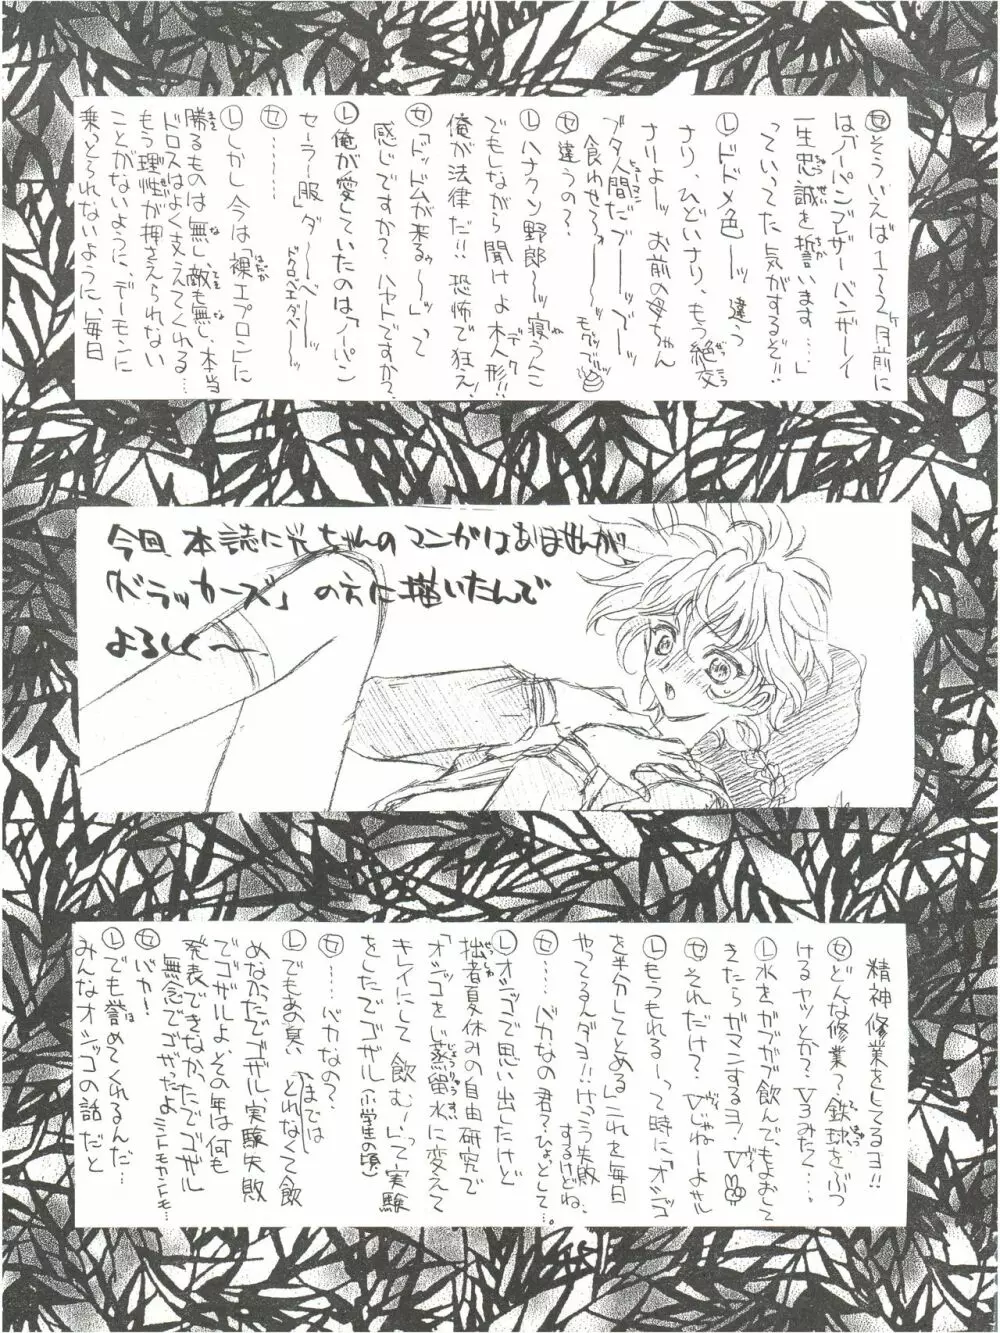 セ そういえば1~2ヶ月前に
は「ノーパンブレザーバンザーイ
一生忠誠を誓います……」
っていってた気がするぞ!!
レ ドドメ色——ッ 違う
ナリ、ひどいナリ、もう絶交
ナリよ〜〜 お前の母ちゃん
ブタ人間だブ——デ——
食わせろっ———
セ 違うの?
レ ハナクソ野郎——ッ 寝うんこ
でもしながら聞けよ木人形!!
俺が法律だ!! 恐怖で狂え!
セ 「ドッドムが来るゥ〜〜」って
感じですか? ハヤトですか?
レ 俺が愛していたのは「ノーパン
セーラー服」ダ——ベ——ッ
セ ………
レ しかし今は裸エプロンに
勝るものは無し、敵も無し、本当
ドロスはよく支えてくれる…
もう理性が押さえられない
ことがないように、デーモンに
乗っとられないように、毎日
今回 本誌に光ちゃんの マンガはありませんが
「ドラッカーズ」の方に描いたんで
よろしく〜
精神修業をしてるヨ!!
セ どんな修業? 鉄球をぶつ
けるヤツとか? V3みたく…。
レ 水をガブガブ飲んで、もよおして
きたらガマンするヨ・V
セ それだけ?・Vじゃねーよサル
レ もうもれる〜って時に「オシッコ
を半分してとめる」これを毎日
やってるんダヨ!! けっこう失敗
するけどね、
セ ‥‥バカなの君? ひょっとして…。
レ オシッコで思い出したけど
拙者夏休みの自由研究で
「オシッコをじょうりゅうすい蒸留水に変えて
キレイにして飲む」って実験
をしたでゴザル(小学生の頃)
セ …バカなの?
レ でもあの臭い(とれなくて飲
めなかったでゴザル実験失敗
でゴザルよ、その年は何も
発表できなかったでゴザル
無念でゴザったよ
セ バカ!
レ でも誉めてくれるんだ…
みんなオシッコの話だと